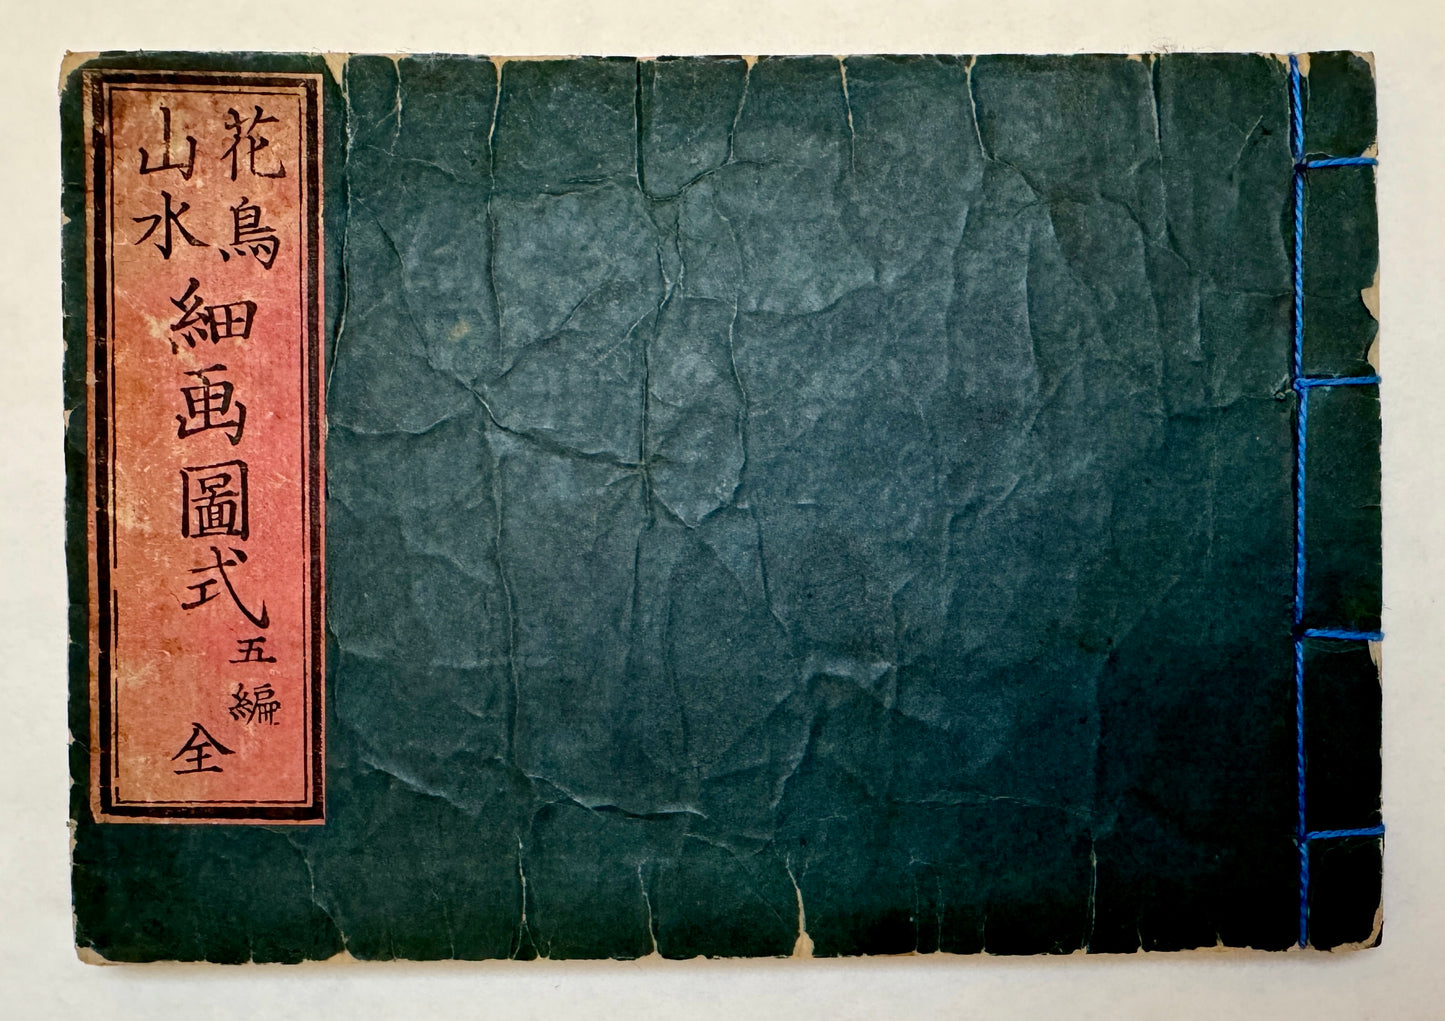 花鳥
山水
細画圖式
五編
全